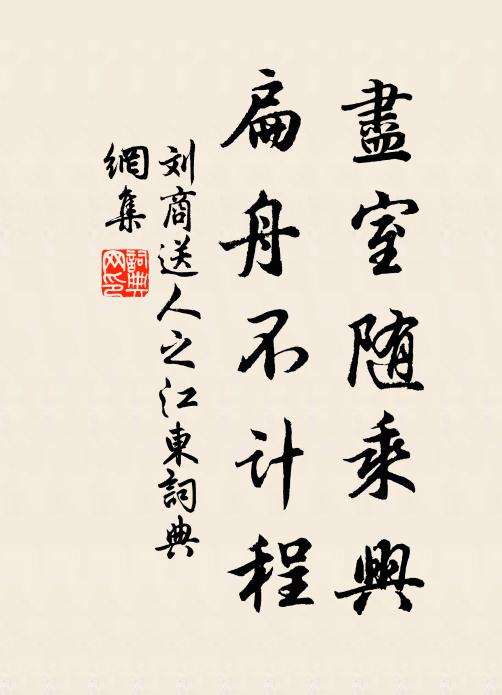 盡室随乘興
扁舟不计程
刘商送人之江東詞典
網集
詞典
网印